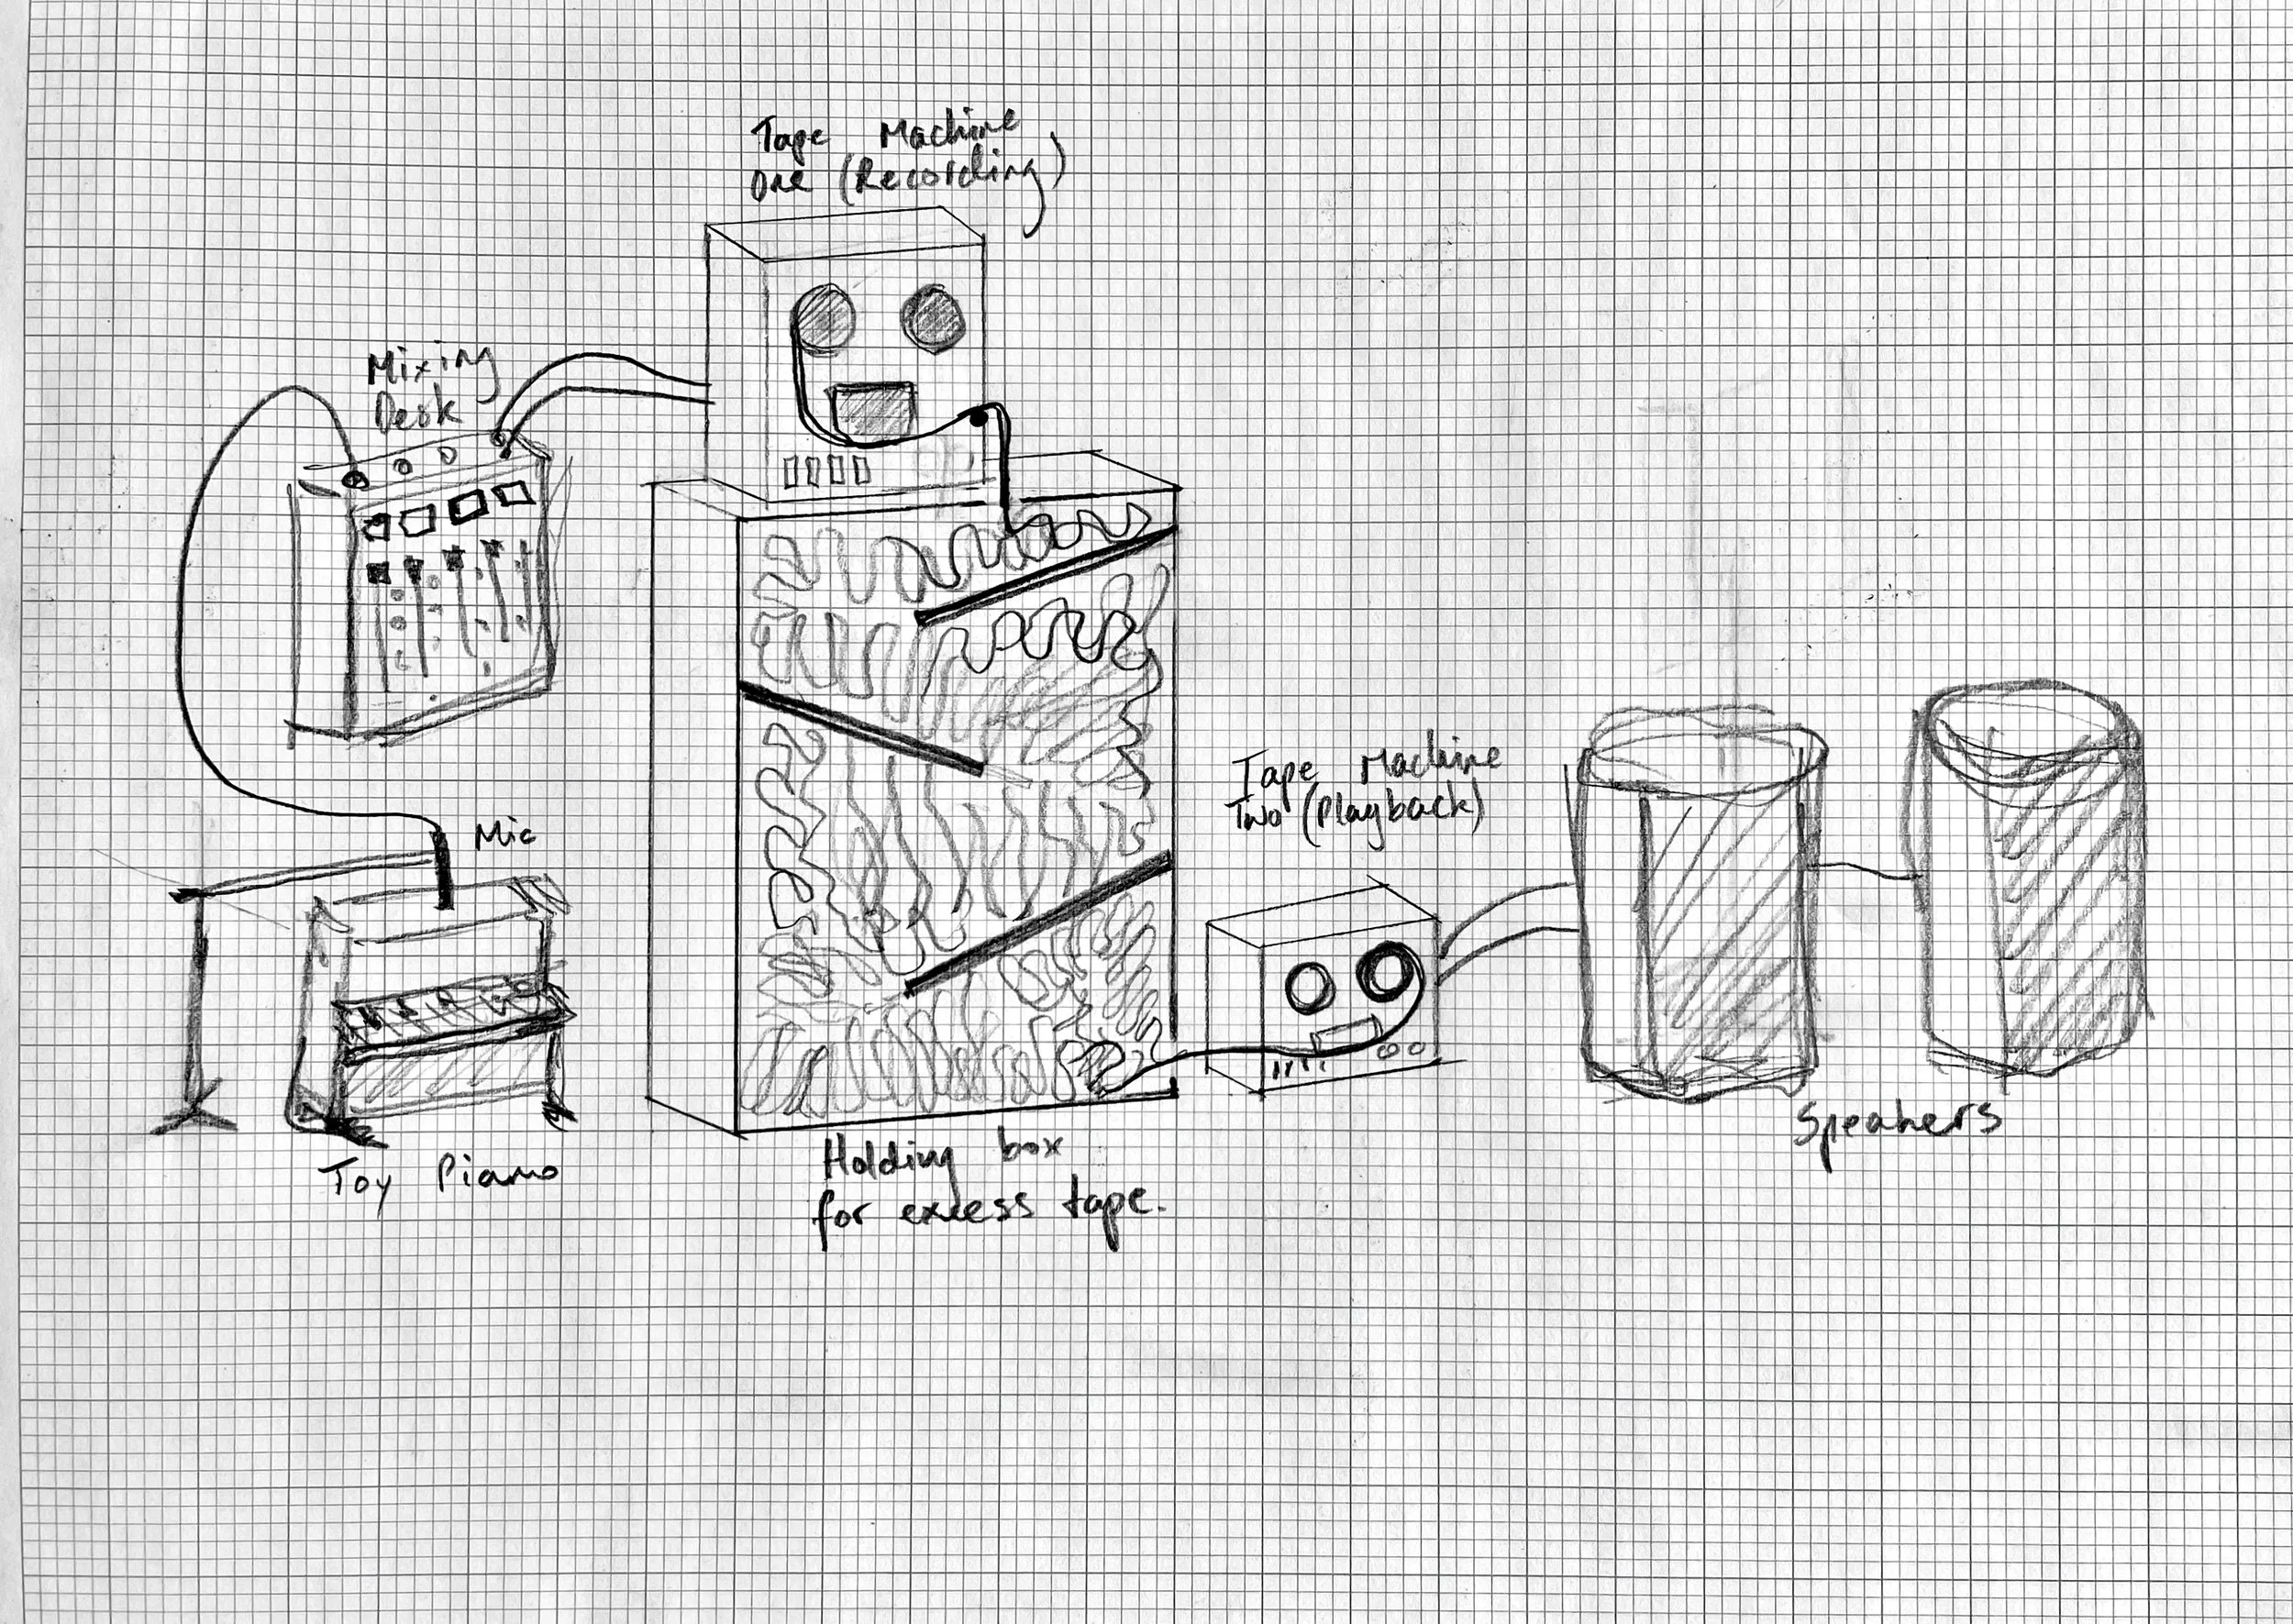 Tape Machine
One (Recording)
Mixing
Desk
Mic
Tape Machine
Two (Playback)
Toy Piano
Holding box
for excess tape.
Speakers